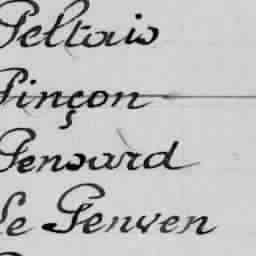 Peltais
Pinçon
Pensard
Le Penven